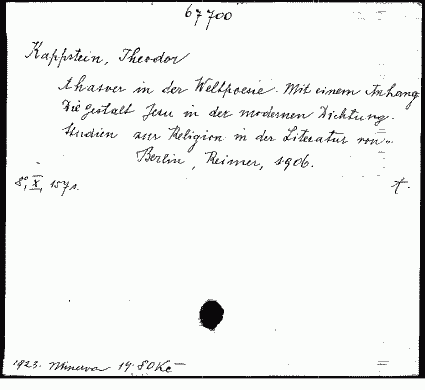 67700
Kappstein, Theodor
Ahasver in der Weltpoesie. Mit einem Anhang
Die Gestalt Jesu in der modernen Dichtung.
Studien zur Religion in der Literatur von..
Berlin, Reimer, 1906.
8°, X, 157 s. A.
1923. Minerva 19.80 Kč